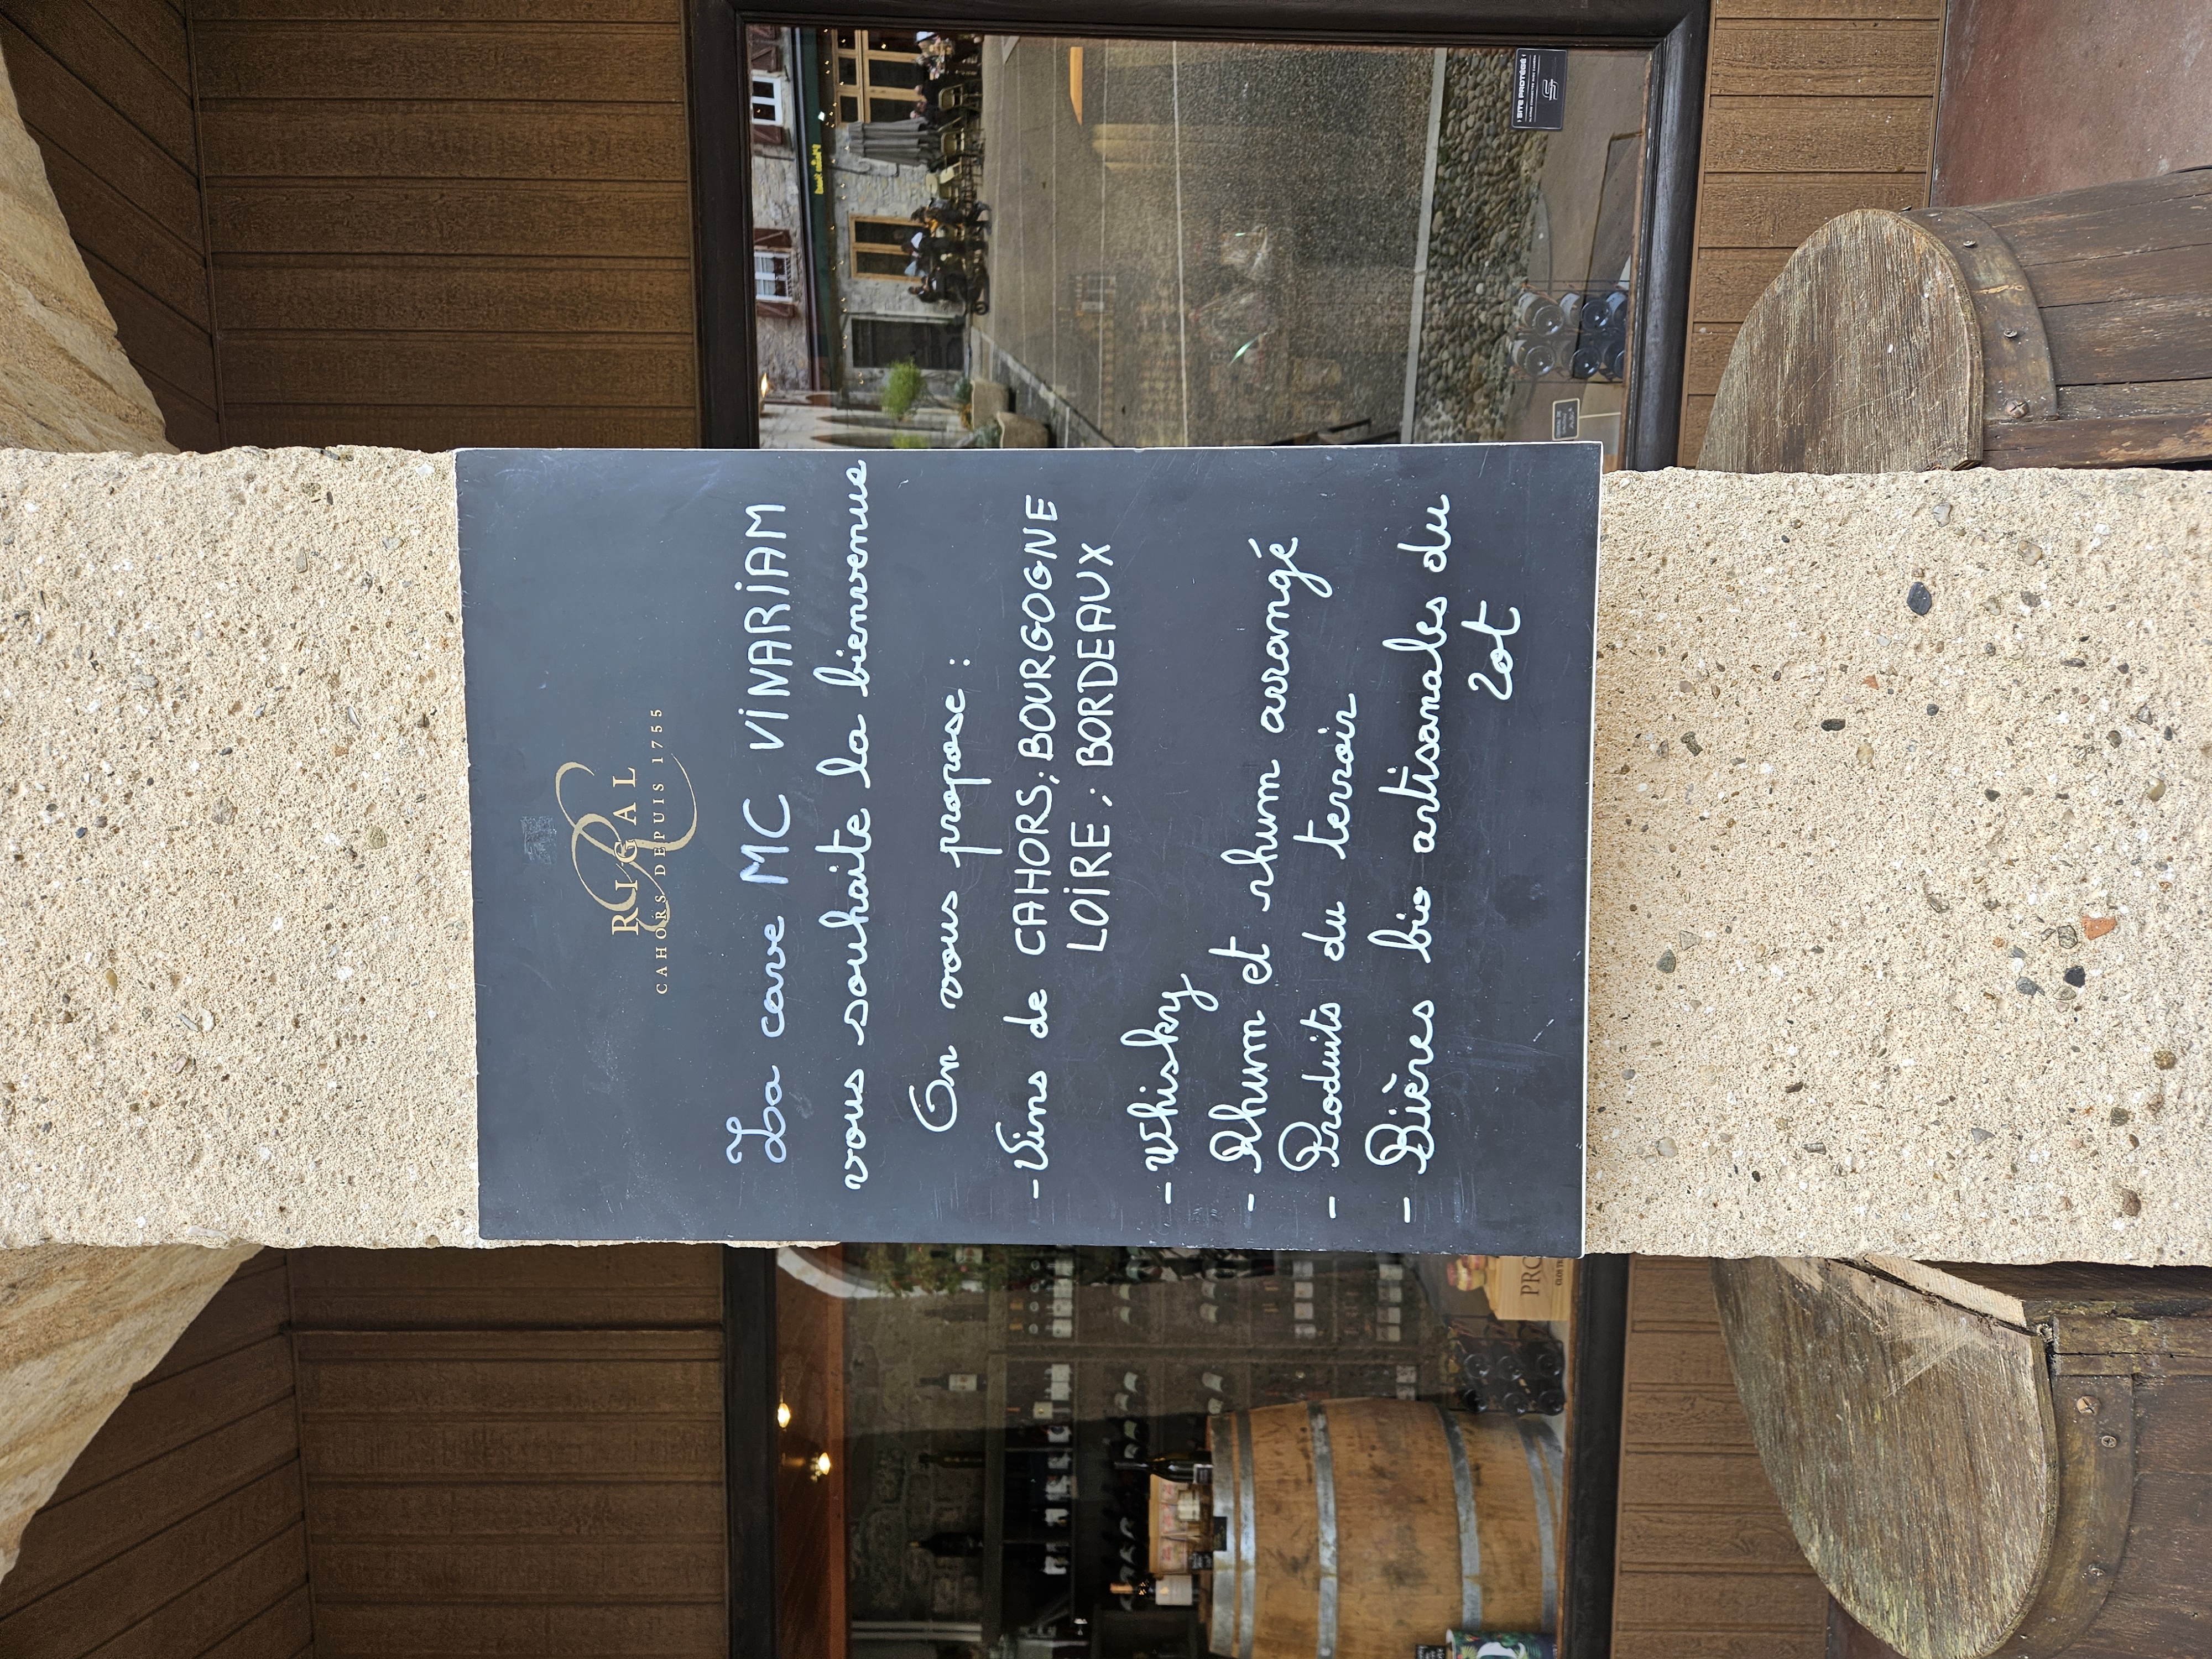 RIGAL
CAHORS DEPUIS 1755
La cave MC VINARIAM
vous souhaite la bienvenue
On vous propose :
- Vins de CAHORS; BOURGOGNE
LOIRE; BORDEAUX
- Whisky
- Rhum et rhum arrangé
- Produits du terroir
- Bières bio artisanales du
Lot
SITE PROTÉGÉ
PRO